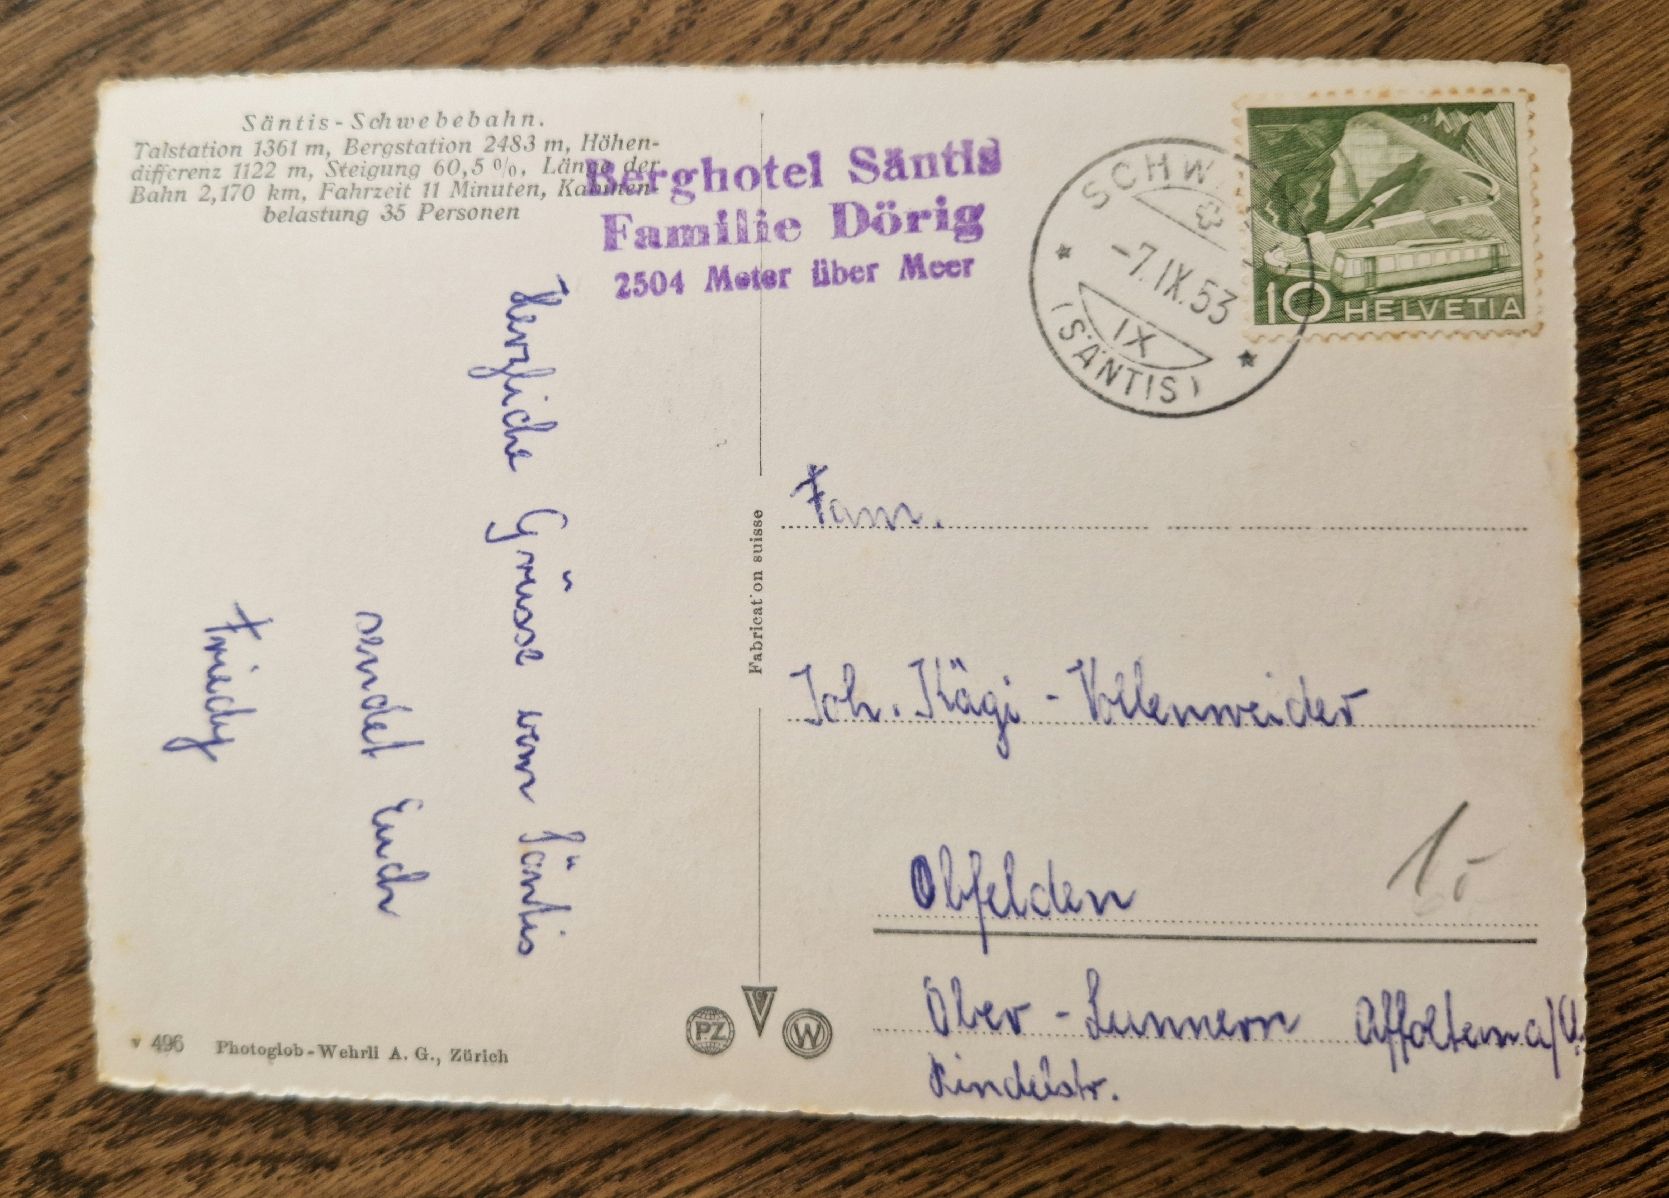 Säntis-Schwebebahn.
Talstation 1361 m, Bergstation 2483 m, Höhen-
differenz 1122 m, Steigung 60,5 %, Länge der
Bahn 2,170 km, Fahrzeit 11 Minuten, Kabinen-
belastung 35 Personen
Berghotel Säntis
Familie Dörig
2504 Meter über Meer
SCHW
-7.IX.53
IX
(SÄNTIS)
10 HELVETIA
Herzliche Grüsse vom Säntis
sendet Euch
Friedy
Fabrication suisse
Fam.
Joh. Kägi-Vollenweider
Obfelden
Ober-Lunnern Affoltern a/A.
PZ
W
v 496 Photoglob-Wehrli A. G., Zürich